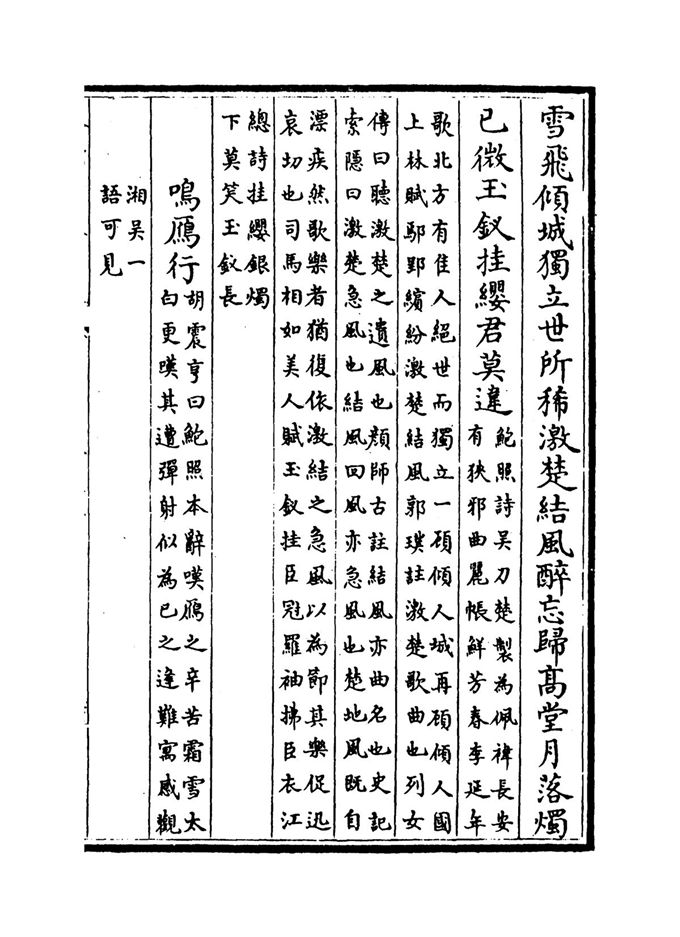 雪飛傾城獨立世所稀激楚結風醉忘歸髙堂月落燭
已微玉釵挂纓君莫違
鮑照詩吴刀楚製為佩褘長安
有狹邪曲麗帳鮮芳春李延年
歌北方有佳人絕世而獨立一顧傾人城再顧傾人國
上林賦鄢郢繽紛激楚結風郭璞註激楚歌曲也列女
傳曰聽激楚之遺風也顔師古註結風亦曲名也史記
索隱曰激楚急風也結風回風亦急風也楚地風既自
漂疾然歌樂者猶復依激結之急風以為節其樂促迅
哀切也司馬相如美人賦玉釵挂臣冠羅袖拂臣衣江
總詩挂纓銀燭
下莫笑玉釵長
鳴鴈行
胡震亨曰鮑照本辭嘆鴈之辛苦霜雪太
白更嘆其遭彈射似為己之逢難寓感觀
湘吳一
語可見